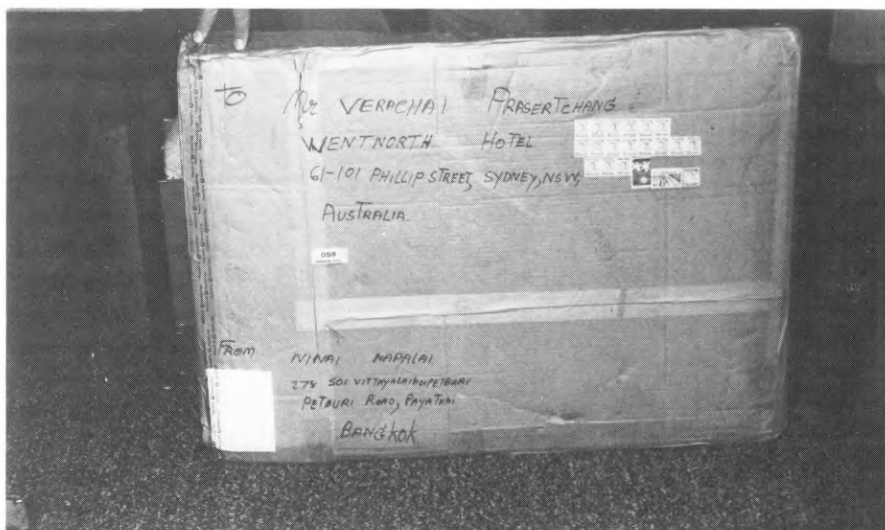 TO Mr VERACHAI PRASERTCHANG
WENTNORTH HOTEL
61-101 PHILLIP STREET, SYDNEY, NSW,
AUSTRALIA.
FROM NINAI NAPALAI
278 SOI
PETBURI ROAD, PAYATHAI
BANGKOK